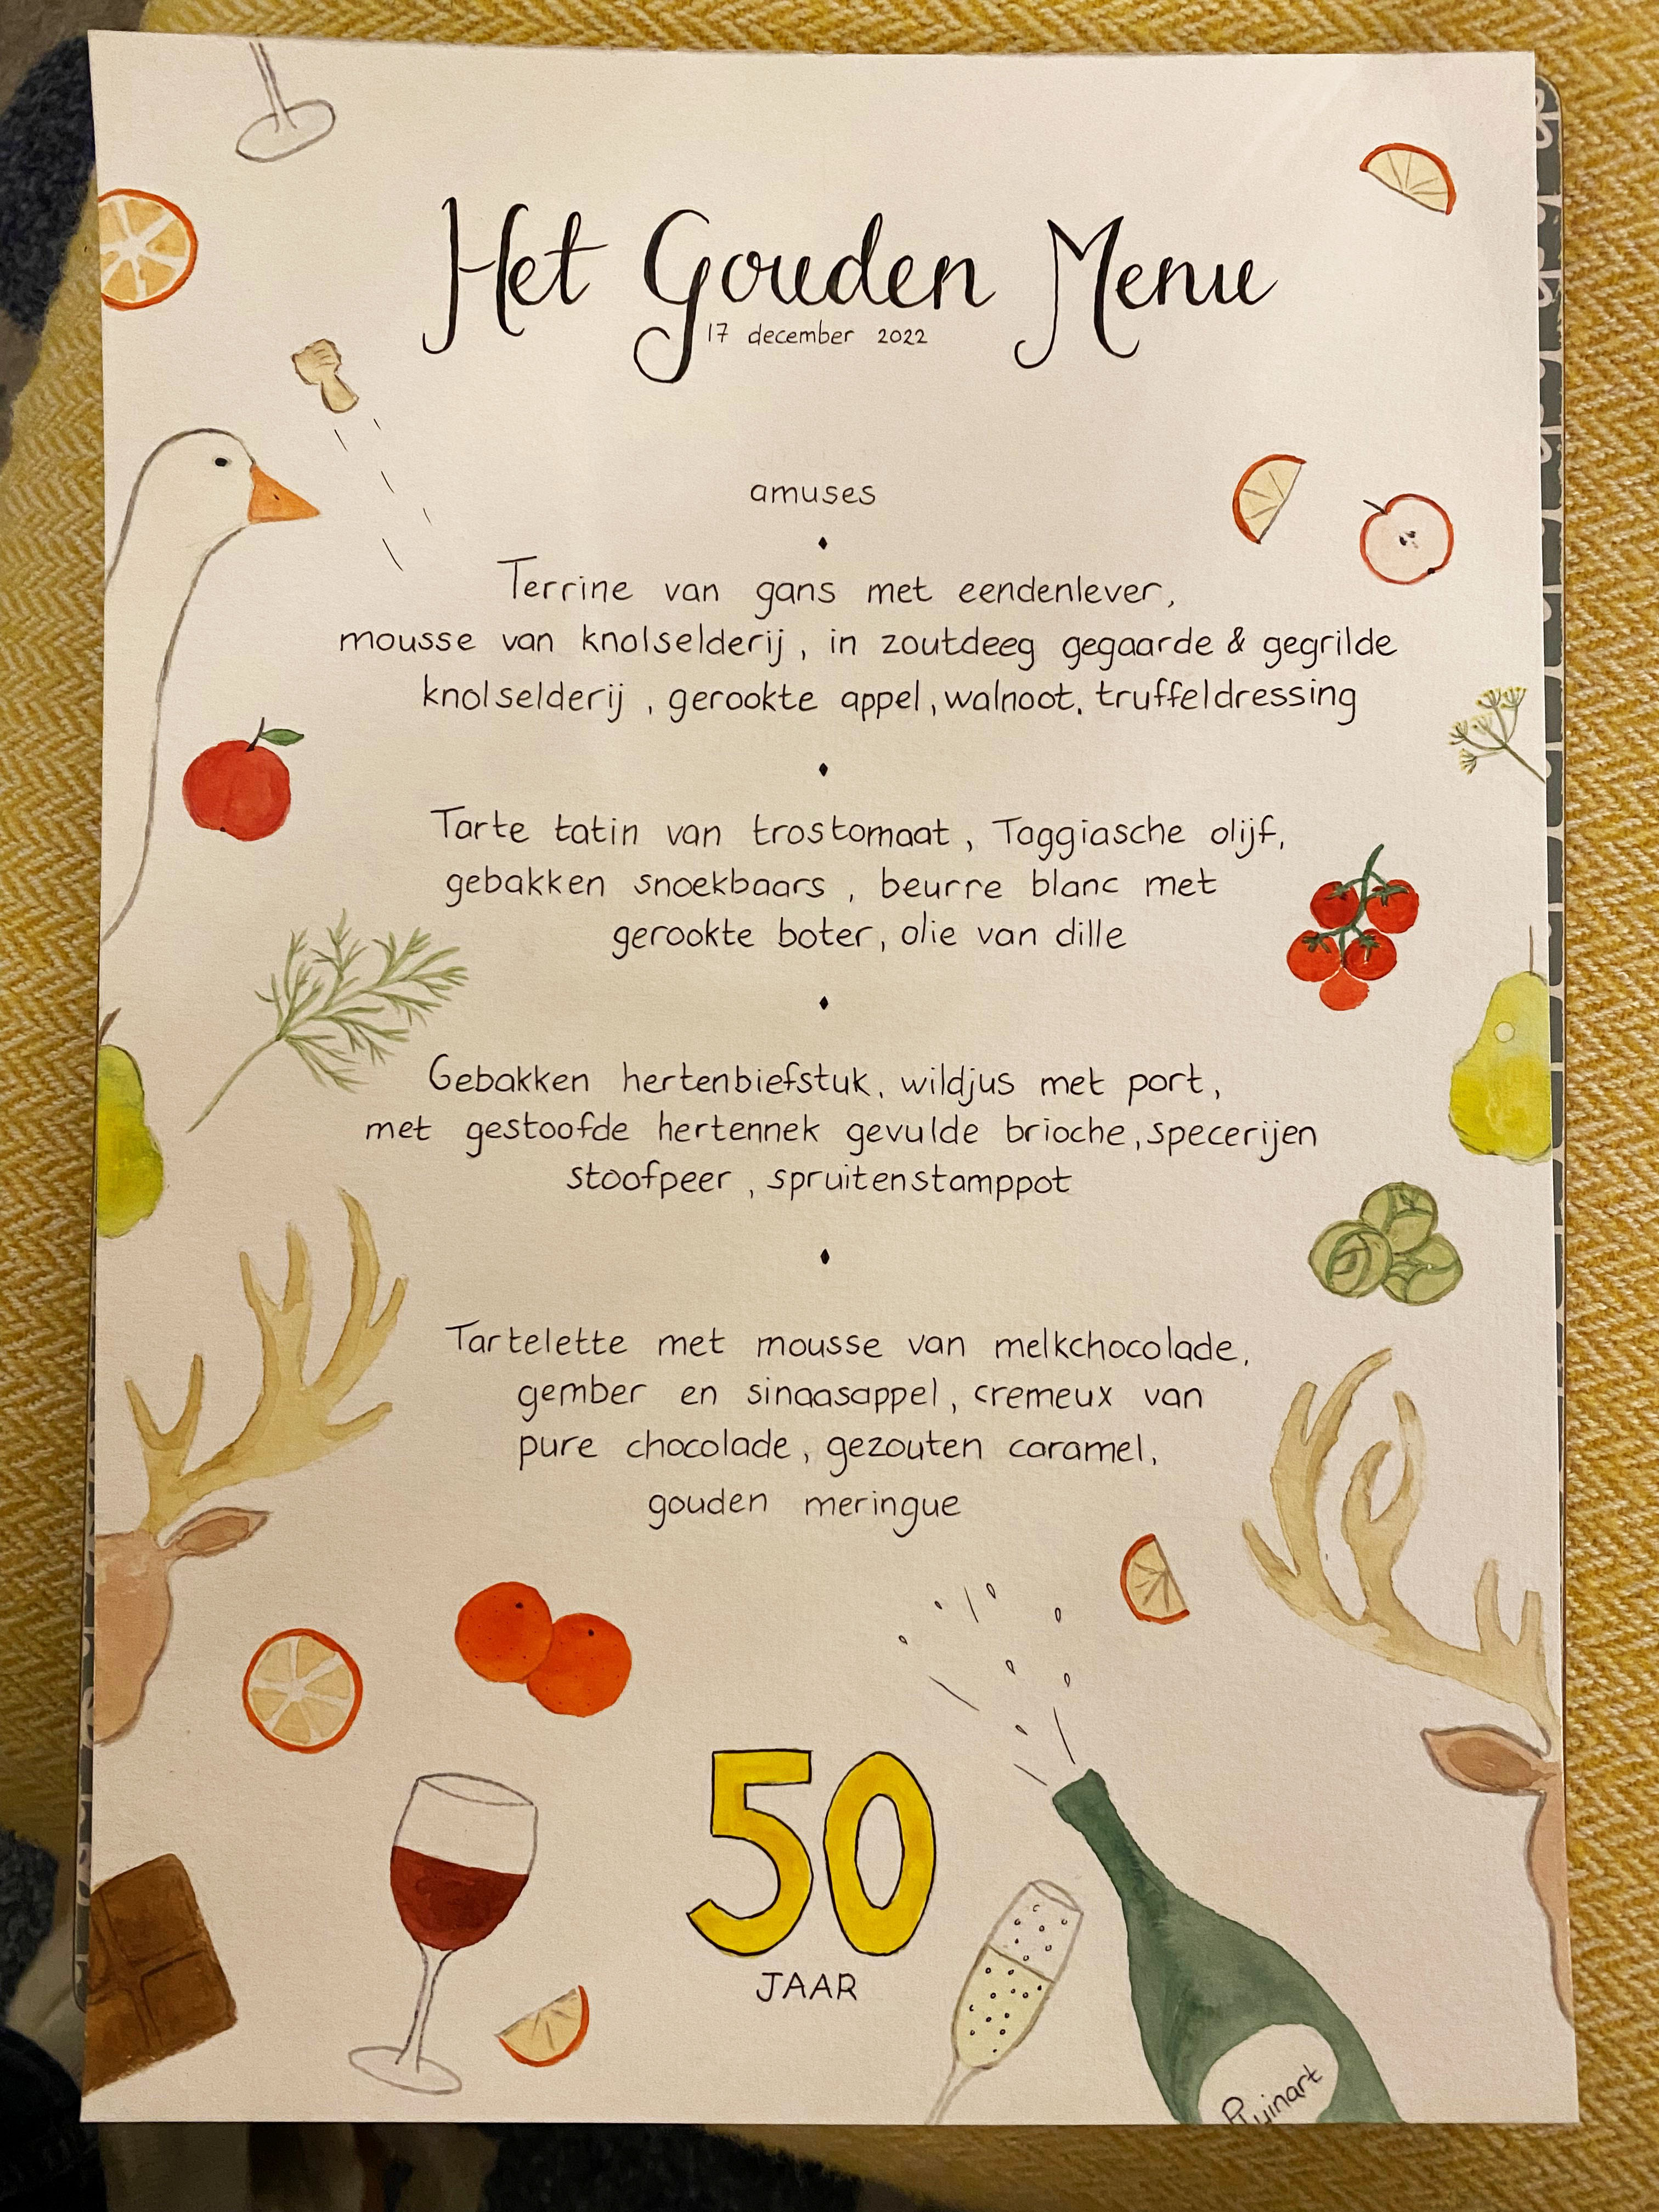 Het Gouden Menu
17 december 2022
amuses
Terrine van gans met eendenlever,
mousse van knolselderij, in zoutdeeg gegaarde & gegrilde
knolselderij, gerookte appel, walnoot, truffeldressing
Tarte tatin van trostomaat, Taggiasche olijf,
gebakken snoekbaars, beurre blanc met
gerookte boter, olie van dille
Gebakken hertenbiefstuk, wildjus met port,
met gestoofde hertennek gevulde brioche, specerijen
stoofpeer, spruitenstamppot
Tartelette met mousse van melkchocolade,
gember en sinaasappel, cremeux van
pure chocolade, gezouten caramel,
gouden meringue
50
JAAR
Ruinart